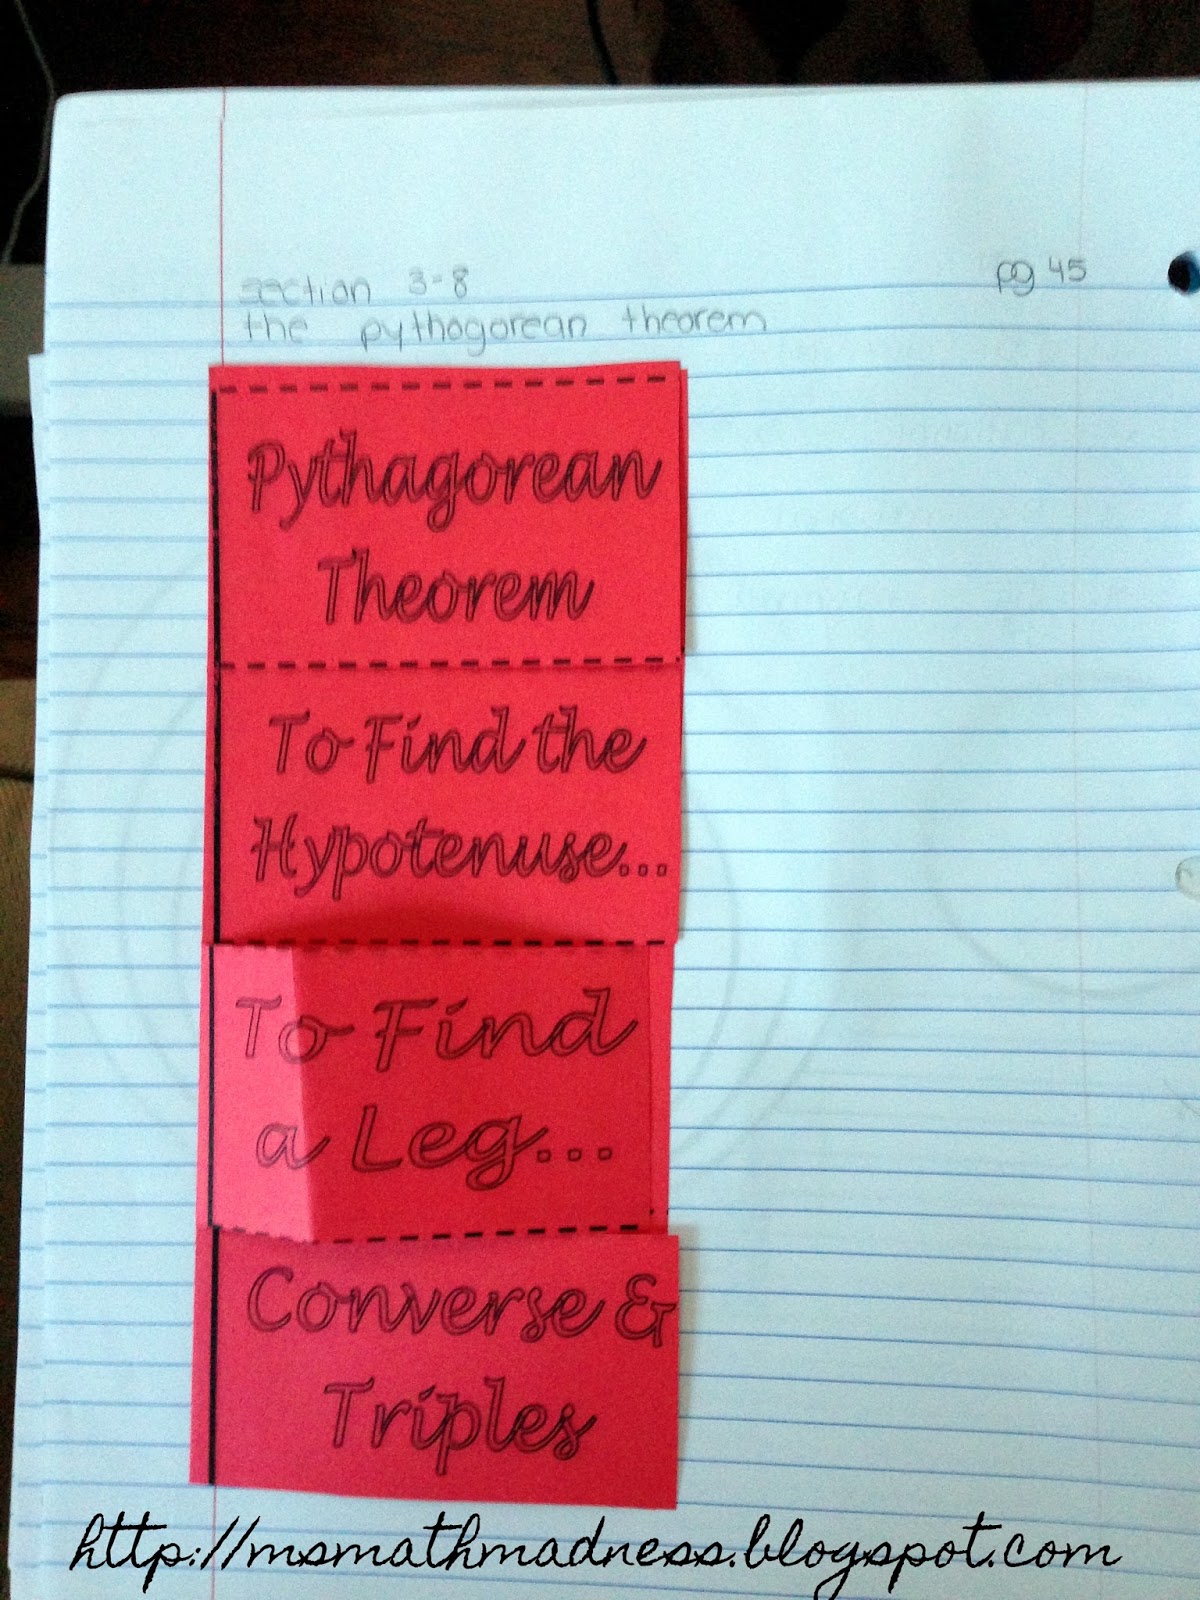 section 3-8
pg 45
the pythogorean theorem
Pythagorean
Theorem
To Find the
Hypotenuse...
To Find
a Leg...
Converse &
Triples
http://msmathmadness.blogspot.com